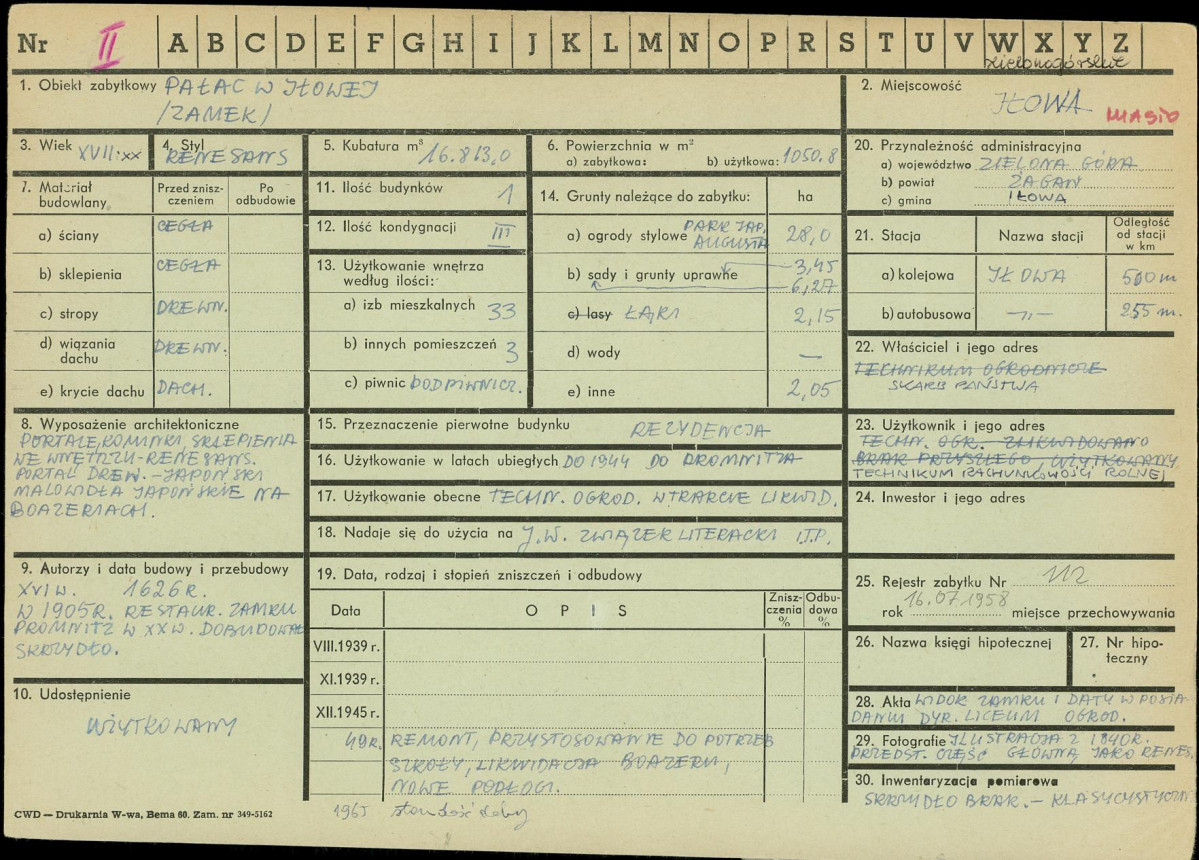 Nr II A B C D E F G H I J K L M N O P R S T U V W X Y Z
zielonogórskie
1. Obiekt zabytkowy PAŁAC W IŁOWEJ
/ZAMEK/
2. Miejscowość
IŁOWA MIASTO
3. Wiek XVII-XX
4. Styl
RENESANS
5. Kubatura m³
16.813,0
6. Powierzchnia w m²
a) zabytkowa: b) użytkowa: 1050.8
20. Przynależność administracyjna
a) województwo ZIELONA GÓRA
b) powiat ŻAGAŃ
c) gmina IŁOWA
7. Materiał
budowlany
Przed znisz-
czeniem
Po
odbudowie
a) ściany CEGŁA
b) sklepienia CEGŁA
c) stropy DREWN.
d) wiązania
dachu DREWN.
e) krycie dachu DACH.
11. Ilość budynków 1
12. Ilość kondygnacji III
13. Użytkowanie wnętrza
według ilości:
a) izb mieszkalnych 33
b) innych pomieszczeń 3
c) piwnic PODPIWNICZ.
14. Grunty należące do zabytku: ha
a) ogrody stylowe PARK JAP.
AUGUSTA 28,0
b) sady i grunty uprawne 3,45
6,27
c) lasy ŁĄKI 2,15
d) wody —
e) inne 2,05
21. Stacja Nazwa stacji
Odległość
od stacji
w km
a) kolejowa IŁOWA 500 m
b) autobusowa —„— 255 m.
22. Właściciel i jego adres
TECHNIKUM OGRODNICZE
SKARB PAŃSTWA
8. Wyposażenie architektoniczne
PORTALE, KOMINKI, SKLEPIENIA
WE WNĘTRZU-RENESANS.
PORTAL DREW.-JAPOŃSKI
MALOWIDŁA JAPOŃSKIE NA
BOAZERIACH.
15. Przeznaczenie pierwotne budynku REZYDENCJA
16. Użytkowanie w latach ubiegłych DO 1944 DO PROMNITZA
17. Użytkowanie obecne TECHN. OGROD. W TRAKCIE LIKWID.
18. Nadaje się do użycia na J.W. ZWIĄZEK LITERACKI ITP.
23. Użytkownik i jego adres
TECHN. OGR. ZLIKWIDOWANO
BRAK PRZYSZŁEGO UŻYTKOWNIKA
TECHNIKUM RACHUNKOWOŚCI ROLNEJ
24. Inwestor i jego adres
9. Autorzy i data budowy i przebudowy
XVI W. 1626 R.
W 1905 R. RESTAUR. ZAMKU
PROMNITZ W XX W. DOBUDOWAŁ
SKRZYDŁO.
19. Data, rodzaj i stopień zniszczeń i odbudowy
Data OPIS
Znisz-
czenia
%
Odbu-
dowa
%
VIII.1939 r.
XI.1939 r.
XII.1945 r.
49 R. REMONT, PRZYSTOSOWANIE DO POTRZEB
SZKOŁY, LIKWIDACJA BOAZERII,
NOWE PODŁOGI.
1965
25. Rejestr zabytku Nr 112
rok 16.07.1958 miejsce przechowywania
26. Nazwa księgi hipotecznej
27. Nr hipo-
teczny
10. Udostępnienie
UŻYTKOWANY
28. Akta WIDOK ZAMKU I DATY W POSIA-
DANIU DYR. LICEUM OGROD.
29. Fotografie ILUSTRACJA Z 1840 R.
PRZEDST. CZĘŚĆ GŁÓWNĄ JAKO RENES.
30. Inwentaryzacja pomiarowa
SKRZYDŁO BRAK. - KLASYCYSTYCZN
CWD — Drukarnia W-wa, Bema 60. Zam. nr 349-5162